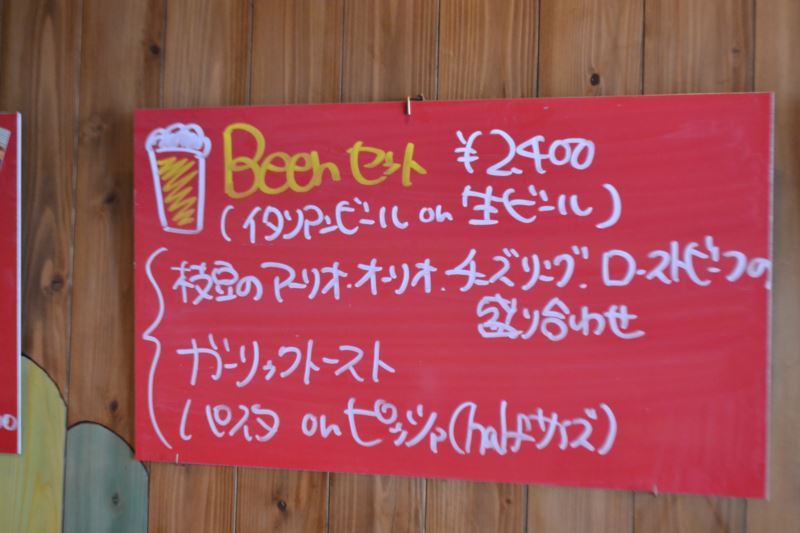 Beerセット ¥2,400
(イタリアンビール or 生ビール)
枝豆のアーリオ・オーリオ、チーズリング、ローストビーフの
盛り合わせ
ガーリックトースト
パスタ or ピッツァ(halfサイズ)